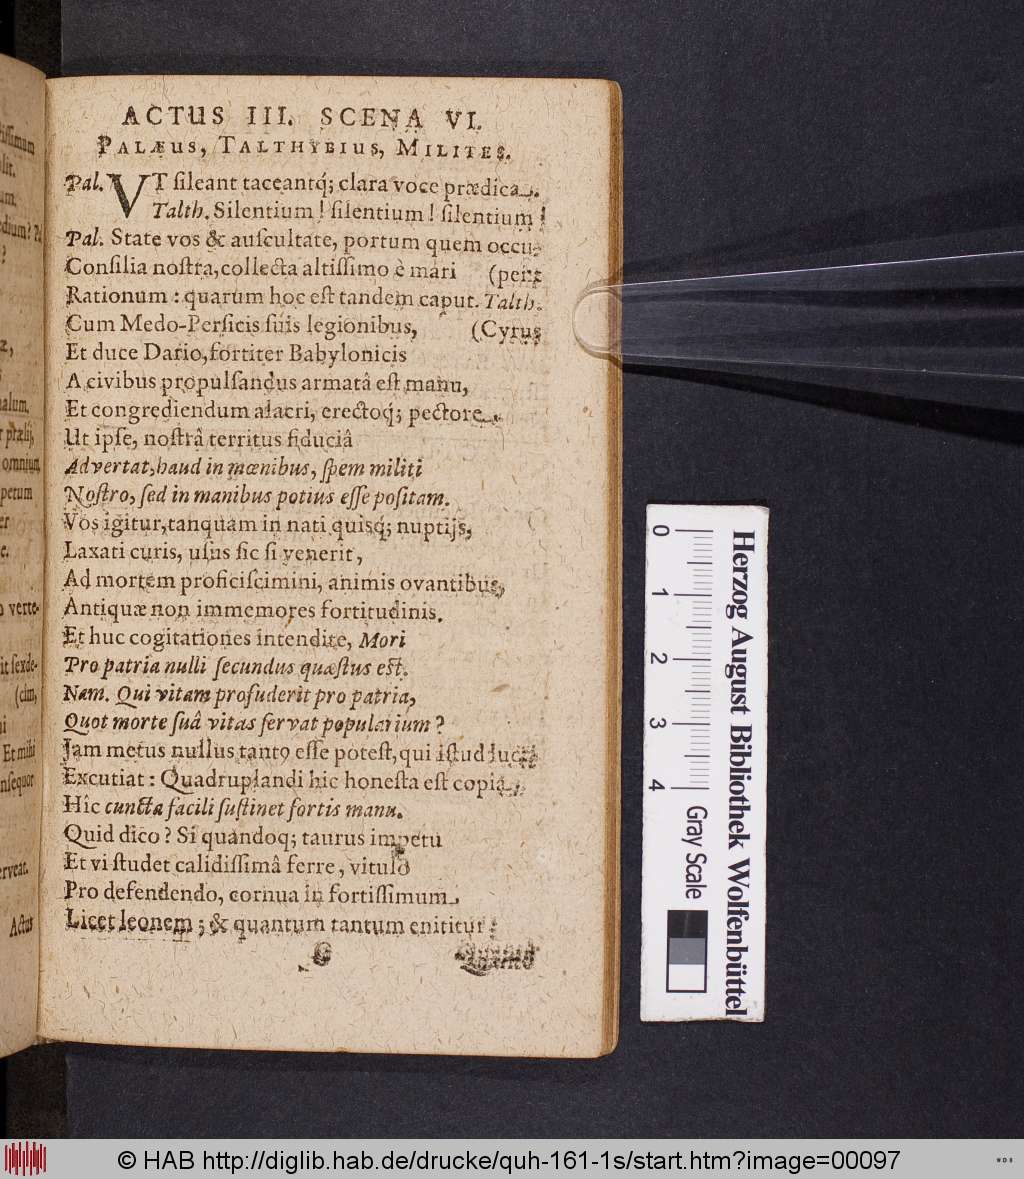 ACTUS III. SCENA VI.
PALÆUS, TALTHYBIUS, MILITES.
Pal. VT ſileant taceantq́; clara voce prædica.
Talth. Silentium! ſilentium! ſilentium!
Pal. State vos & auſcultate, portum quem occu-
Conſilia noſtra, collecta altiſſimo è mari (peñt
Rationum: quarum hoc eſt tandem caput. Talth.
Cum Medo-Perſicis ſuis legionibus, (Cyrus
Et duce Dario, fortiter Babylonicis
A civibus propulſandus armatâ eſt manu,
Et congrediendum alacri, erectoq́; pectore.
Ut ipſe, noſtrâ territus fiduciâ
Advertat, haud in mœnibus, ſpem militi
Noſtro, ſed in manibus potius eſſe poſitam.
Vos igitur, tanquam in nati quisq́; nuptijs,
Laxati curis, uſus ſic ſi venerit,
Ad mortem proficiſcimini, animis ovantibus,
Antiquæ non immemores fortitudinis.
Et huc cogitationes intendite, Mori
Pro patria nulli ſecundus quæſtus eſt.
Nam. Qui vitam profuderit pro patria,
Quot morte ſuâ vitas ſervat popularium?
Jam metus nullus tantꝰ eſſe poteſt, qui iſtud
Excutiat: Quadruplandi hic honeſta eſt copia,
Hîc cuncta facili ſuſtinet fortis manu.
Quid dico? Si quandoq́; taurus impetu
Et vi ſtudet calidiſſimâ ferre, vitulo
Pro defendendo, cornua in fortiſſimum
Licet leonem; & quantum tantum enititur:
G
ſſimum
ſit.
um,
dium? Pal
?
alum.
r prælij,
omnium
petum
er
e.
verte-
it ſexde-
(cim,
ni
Et mihi
nſequor
erveat.
Actus
0 1 2 3 4
Gray Scale
Herzog August Bibliothek Wolfenbüttel
© HAB http://diglib.hab.de/drucke/quh-161-1s/start.htm?image=00097